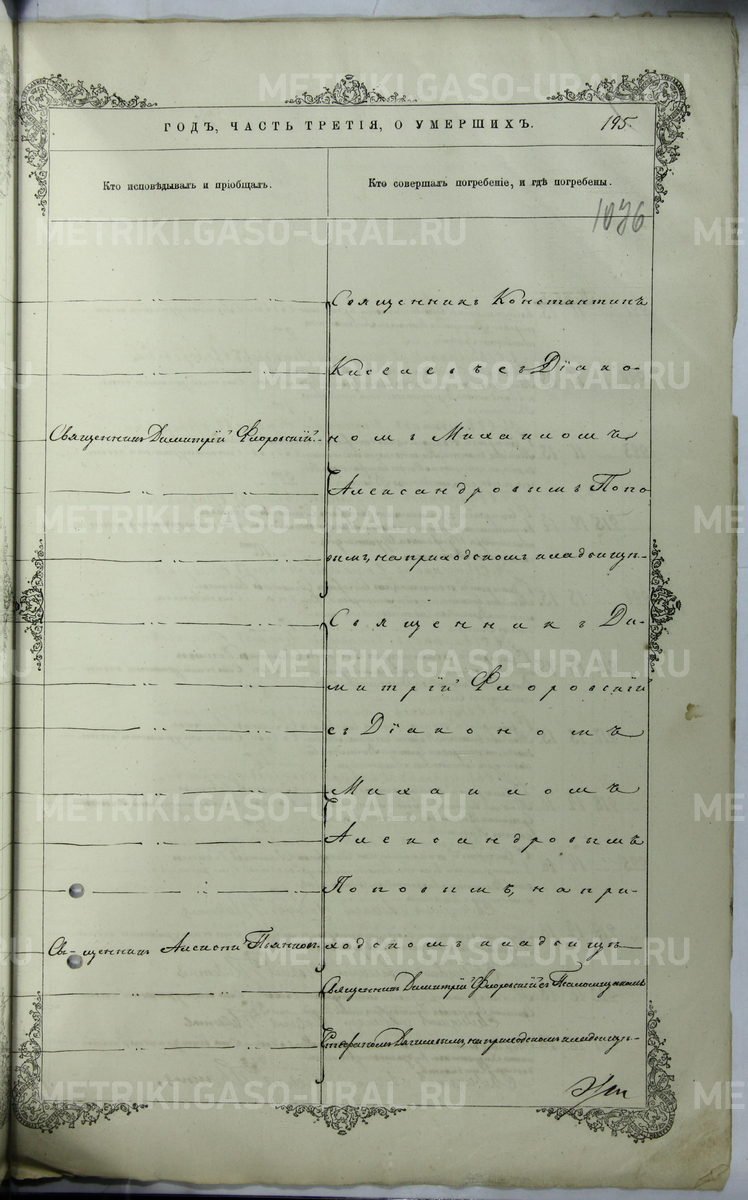 ГОДЪ, ЧАСТЬ ТРЕТІЯ, О УМЕРШИХЪ. 195.
Кто исповѣдывалъ и пріобщалъ.
Кто совершалъ погребеніе, и гдѣ погребены.
1036
Священникъ Константинъ
съ Діако-
Священникъ Димитрій Флоровскій.
номъ Михаиломъ
Александровымъ Попо
вымъ, на приходскомъ кладбищѣ.
Священникъ Ди-
митрій Флоровскій
съ Діакономъ
Михаиломъ
Александровымъ
Поповымъ, на при-
Священникъ
ходскомъ кладбищѣ
Священникъ Димитрій Флоровскій съ Псаломщикомъ
Стефаномъ на приходскомъ кладбищѣ.
METRIKI.GASO-URAL.RU